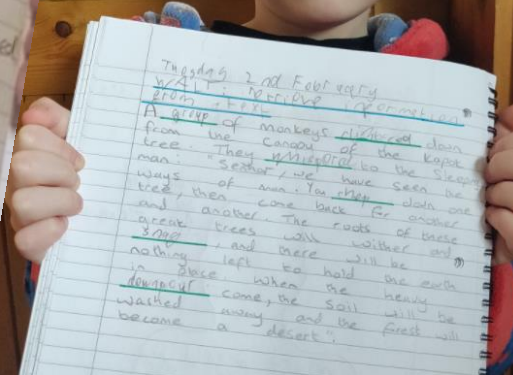 Tuesday 2nd February
WALT: retrive information
from text
A group of monkeys down
from the canopy of the Kapok
tree. They to the Sleeping
man: "Senhor, we have seen the
ways of man. You chop down one
tree, then come back for another
and another. The roots of these
great trees will wither and
, and there will be
nothing left to hold the earth
in place. When the heavy
downpour come, the soil will be
washed away and the forest will
become a desert".